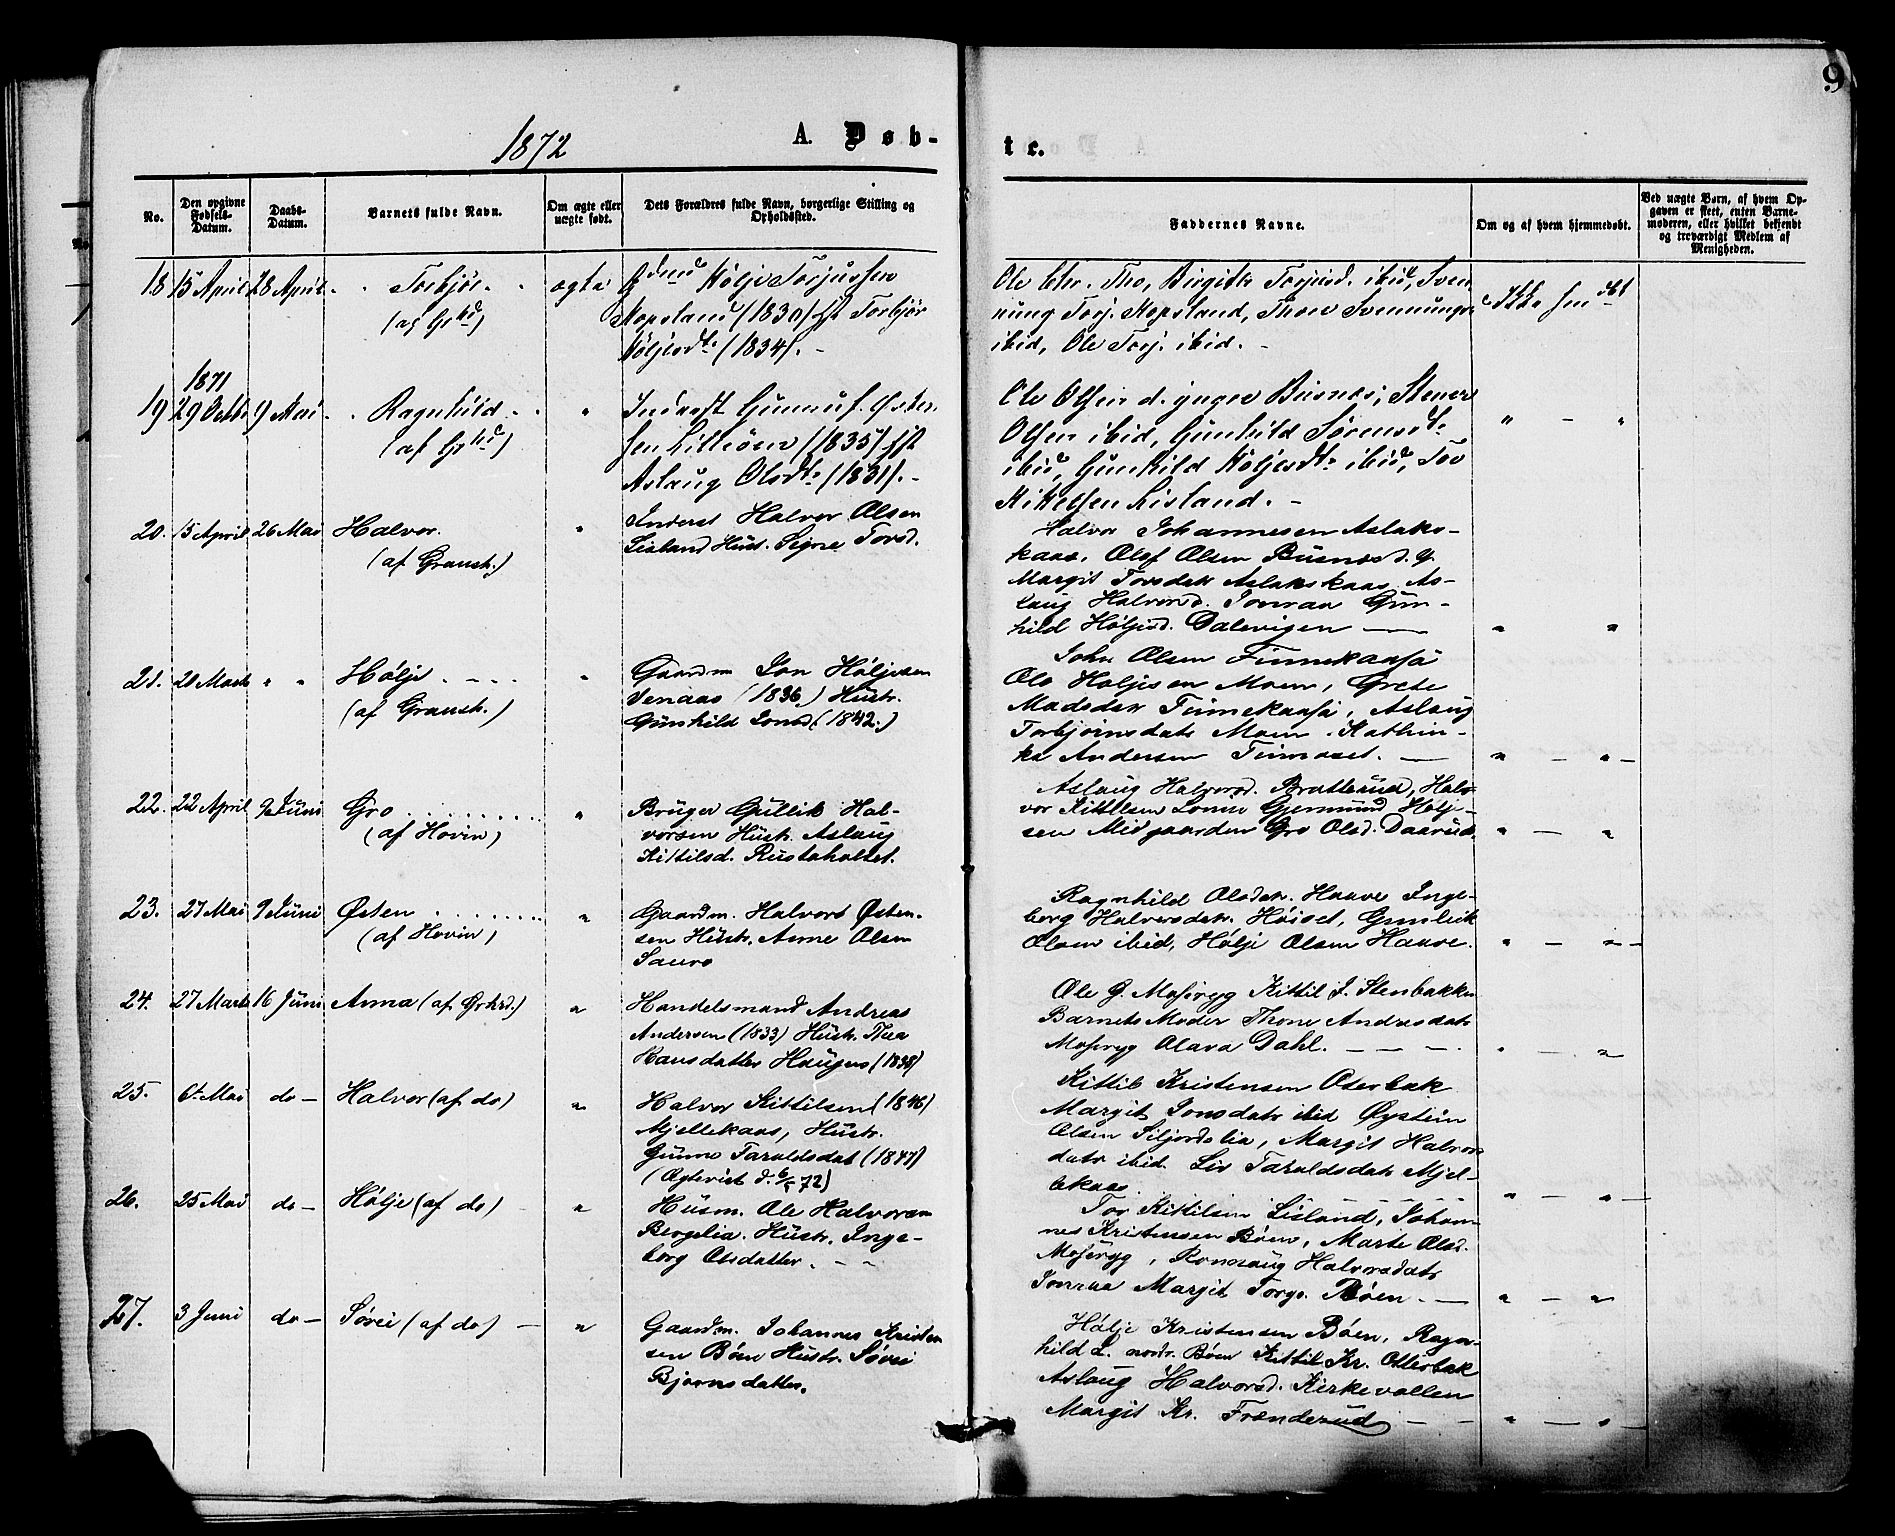 9
1872
A. Døb-
te.
No.
Den opgivne Fødsels-Datum.
Daabs-Datum.
Barnets fulde Navn.
Om ægte eller uægte født.
Dets Forældres fulde Navn, borgerlige Stilling og Opholdssted.
Faddernes Navne.
Om og af hvem hjemmedøbt.
Ved uægte Barn, af hvem Opgaven er skeet, enten Barnemoderen, eller hvilket bekjendt og troværdigt Medlem af Menigheden.
18 15 April 28 April Torbjør
(af Grhd)
ægte
Høljé Torjussen
Kopsland (1830) Torbjør
Høljesdt. (1834).
Ole Chr. Tho, Birgith Torjusd. ibid, Sven-
nung Torj. Kopsland, Thore Svennungs.
ibid, Ole Torj. ibid.
Ikke hmdbt
1871
19 29 Octbr 9 Mai Ragnhild
(af Grhd)
"
Inderst Gunnuf Østen-
sen Littiøen (1835)
Aslaug Olsdt. (1831).
Ole Olsen d. yngre Busnes, Stener
Olsen ibid, Gunhild Sørensdt.
ibid, Gunhild Høljesdt. ibid, Tov
Kittelsen Lisland.
" — "
20. 15 April 26 Mai Halvor.
(af Gransh.)
"
Inderst Halvor Olsen
Lisland Hust. Signe Torsd.
Halvor Johannesen Aslaks-
kaas, Olaf Olsen Busnes d. y.
Margit Torsdatr Aslakskaas, As-
laug Halvorsd. Jonraa Gun-
hild Høljesd. Dalevigen —
" "
21. 20 Marts " " Hølje
(af Gransh.)
"
Gaardm Jon Høljesen
Venaas (1836) Hustr.
Gunhild Jonsd. (1842.)
John Olsen Finnekaasa
Ole Høljesen Moen, Grete
Madsdatr Finnekaasa, Aslaug
Torbjørnsdatr Moen. Kathin-
ka Andersen Finnoset. —
" — " —
22. 22 April 9 Juni Gro
(af Hovin)
"
Bruger Gullik Hal-
vorsen Hustr. Aslaug
Kittilsd. Rustaholtet.
Aslaug Halvorsd. Bratterud, Hal-
vor Kittilsen Gjermund Hølje-
sen Midgaarden Gro Olsd. Daarud.
" — "
23. 27 Mai 9 Juni Østen
(af Hovin)
"
Gaardm. Halvor Østen-
sen Hustr. Anne Olsen
Saure
Ragnhild Olsdatr. Haave Inge-
borg Halvorsdatr. Høiset, Gunleik
Olsen ibid, Hølje Olsen Haave.
" — " —
24. 27 Marts 16 Juni Anna (af Grhd.)
"
Handelsmand Andreas
Andersen (1833) Hustr. Thea
Hansdatter Haugen (1838)
Ole G. Moseryg Kittil J. Stenbakken
Barnets Moder Thone Andresdatr
Moseryg Olava Dahl. — — —
" — "
25. 6 Mai do — Halvor (af do)
"
Halvor Kittilsen (1846)
Mjellekaas, Hustr.
Gunne Taraldsdat (1847)
(Ægteviet d. 6/5 72)
Kittil Kristensen Oterbæk
Margit Jonsdatr ibid Øystein
Olsen Siljordslia, Margit Halvors
datr ibid. Liv Taraldsdatr Mjel-
lekaas
" — " —
26. 25 Mai do — Hølje (af do)
"
Husm. Ole Halvorsen
Bergelia. Hustr. Inge-
borg Olsdatter.
Tor Kittilsen Lisland, Johan-
nes Kristensen Bøen, Marte Olsd.
Moseryg, Ronnaug Halvorsdatr
Jonraa Margit Torge. Bøen. —
" — "
27. 3 Juni do — Søvei (af do) —
"
Gaardm. Johannes Kristen
sen Bøen Hustr. Søvei
Bjørnsdatter.
Hølje Kristensen Bøen, Ragn-
hild L. nordr. Bøen Kittil Kr. Otterbæk
Aslaug Halvorsd. Kirkevollen
Margit Kr. Frønderud — —
" — " —